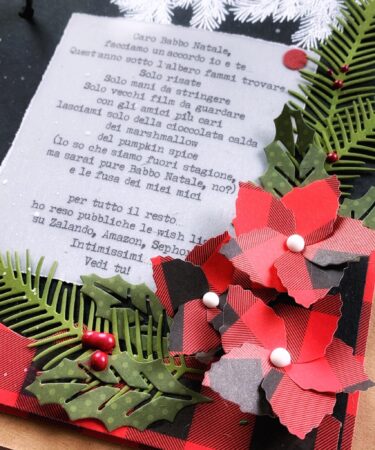 Caro Babbo Natale,
facciamo un accordo io e te
Quest'anno sotto l'albero fammi trovare
Solo risate
Solo mani da stringere
Solo vecchi film da guardare
con gli amici più cari
lasciami solo della cioccolata calda
dei marshmallow
del pumpkin spice
(lo so che siamo fuori stagione,
ma sarai pure Babbo Natale, no?)
e le fusa dei miei mici
per tutto il resto
ho reso pubbliche le wish
su Zalando, Amazon,
Intimissimi
Vedi tu!